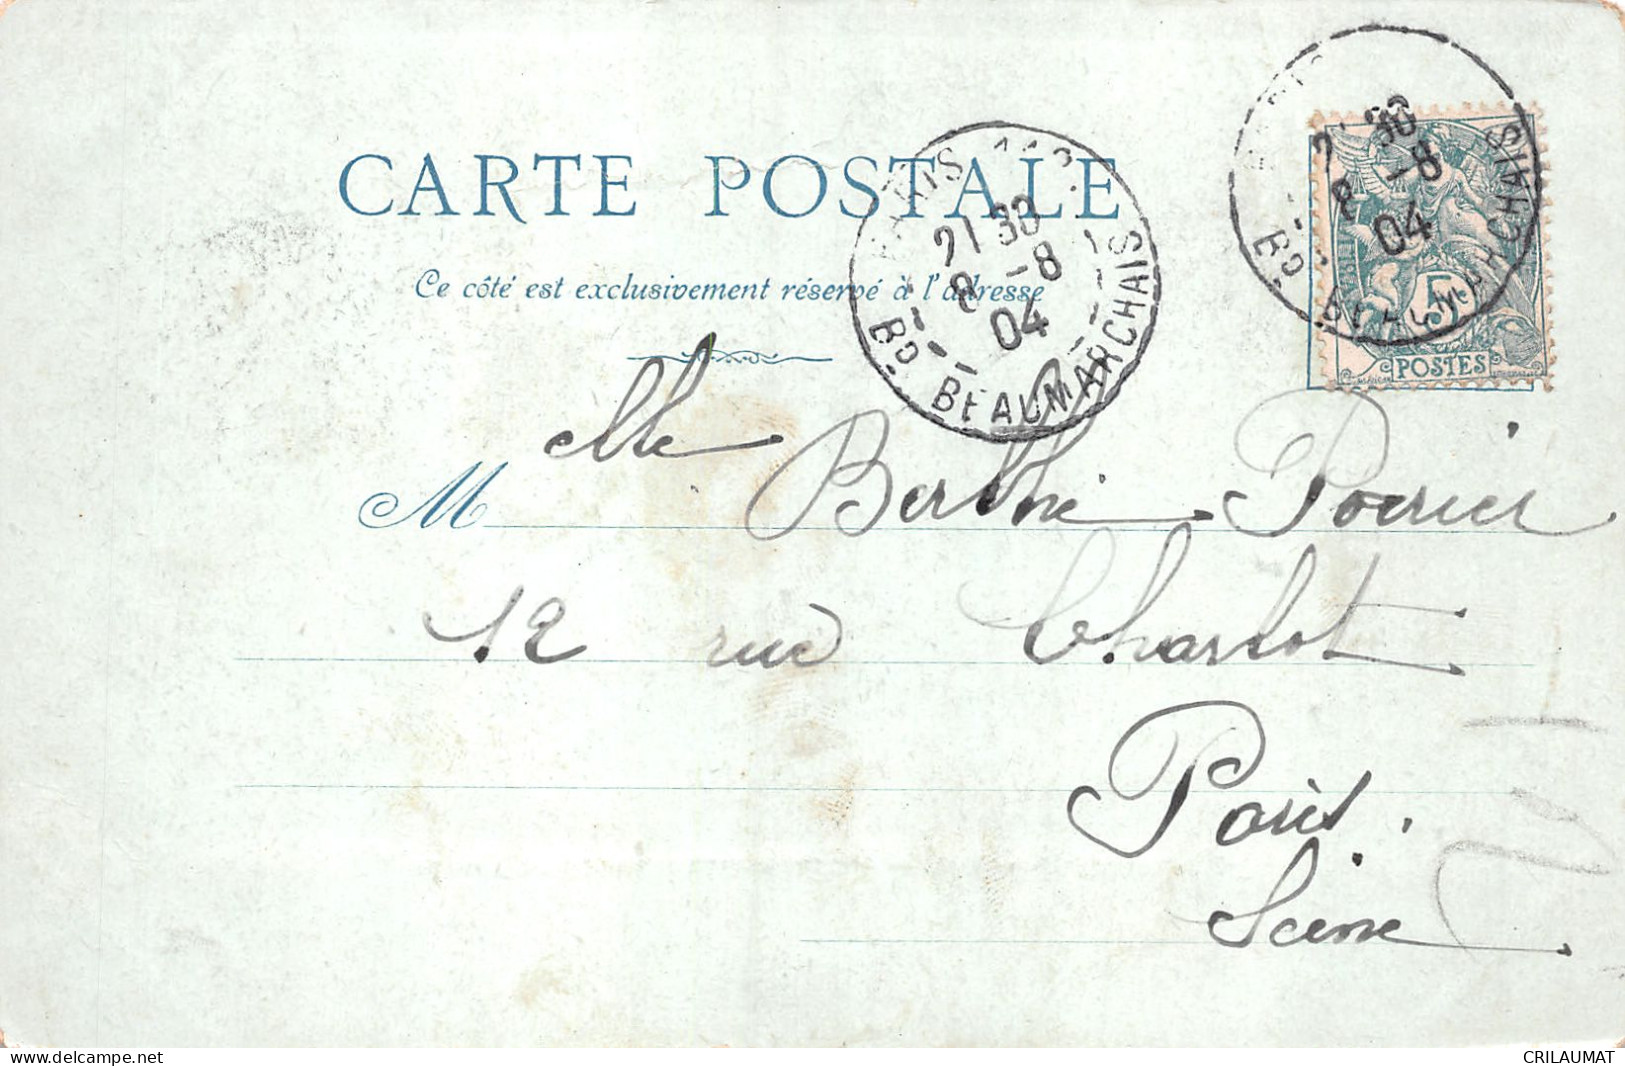 CARTE POSTALE
Ce côté est exclusivement réservé à l'adresse
PARIS
21 30
8 -8
04
BD BEAUMARCHAIS
30
8 -8
04
BD BEAUMARCHAIS
5c
POSTES
M elle Berthe Poirier
12 rue Charlot
Paris.
Seine
delcampe.net
CRILAUMAT